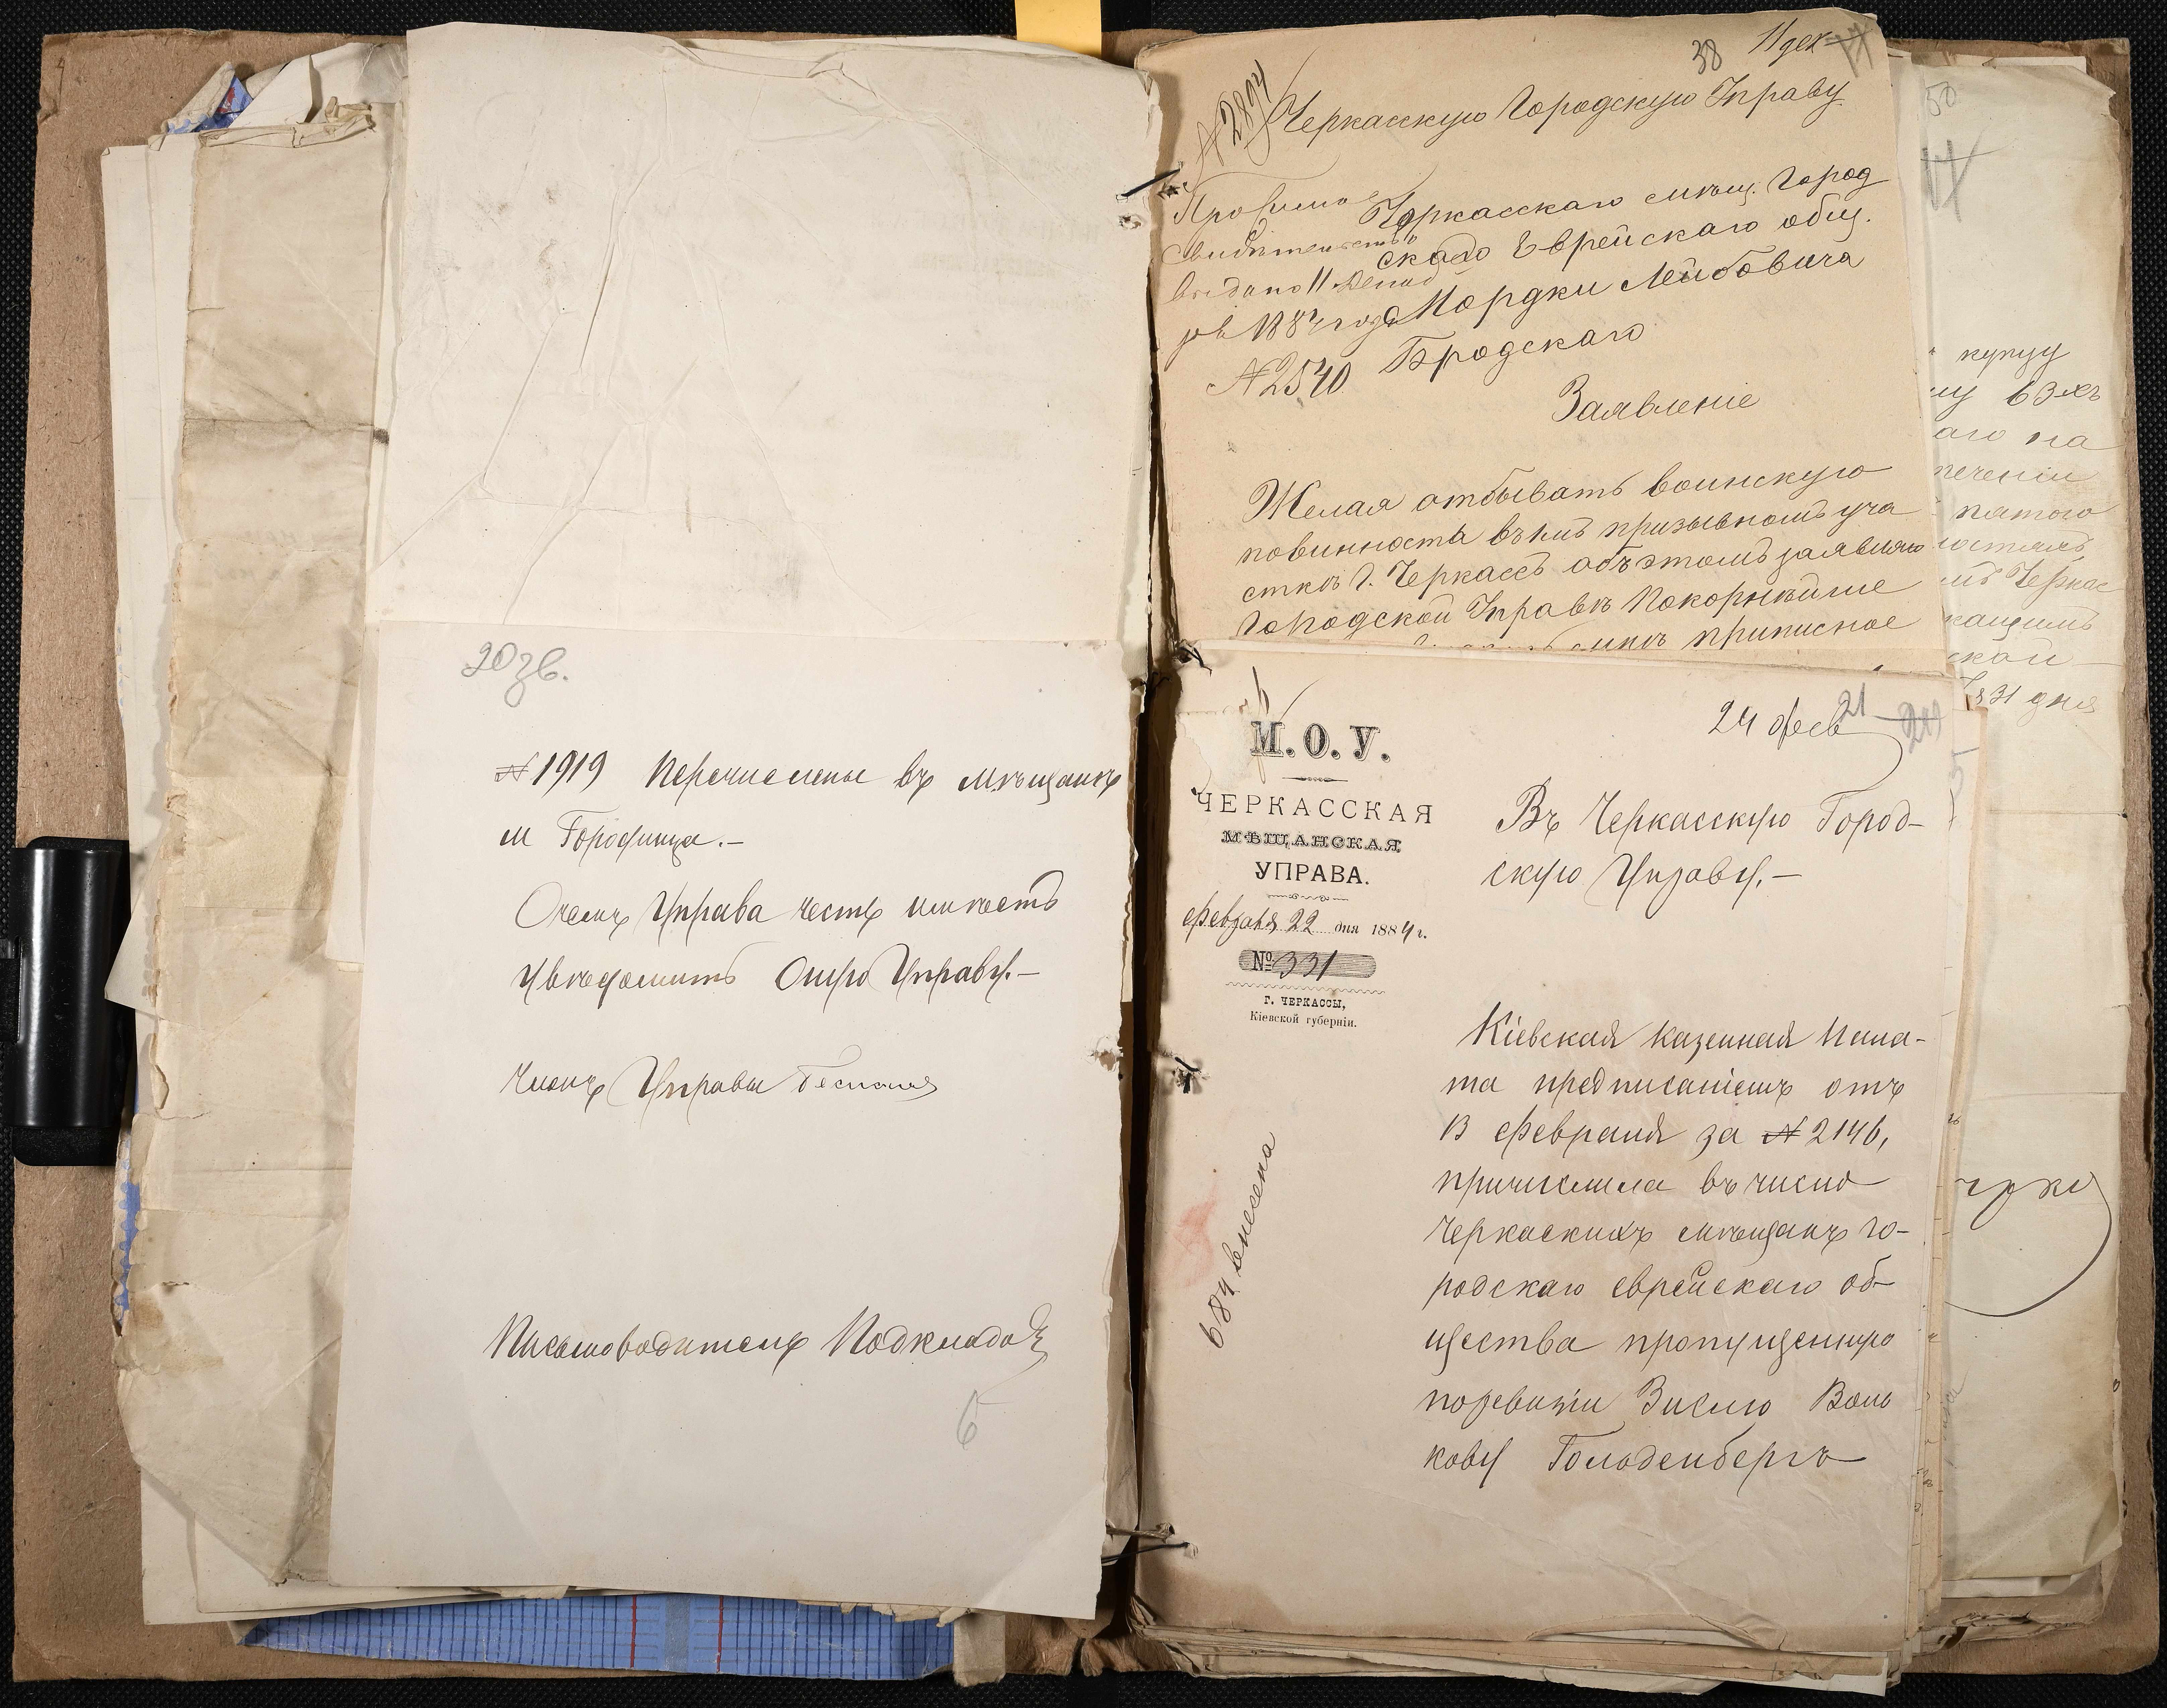 20 зв.
№ 1919 Перечислены въ мѣщане
м Городища.—
О чемъ Управа честь имѣетъ
увѣдомить Ошую Управу.—
Членъ Управы
Письмоводитель
6
38 11 дек
№ 2894
Черкасскую Городскую Управу
Черкасскаго мѣщ. Город
скаго Еврейскаго общ.
Мордки Лейбовича
Бродскаго
Приписное
свидѣтельство
выдано 11 Декаб
ря 1884 года
№ 2540
Заявленіе
Желая отбывать воинскую
повинность въ 1мъ призывномъ уча
сткѣ г. Черкассъ объ этомъ заявляю
Городской Управѣ Покорнѣйше
приписное
24 фев 21
М.О.У.
ЧЕРКАССКАЯ
МѢЩАНСКАЯ
УПРАВА.
Февраля 22 дня 1884 г.
№ 331
Г. ЧЕРКАССЫ,
Кіевской губерніи.
Въ Черкасскую Город-
скую Управу.—
Кіевская Казенная Пала-
та предписаніемъ отъ
13 Февраля за № 2146,
причислила въ число
Черкаскихъ мѣщанъ го-
родскаго еврейскаго об-
щества пропущенную
по ревизіи Зислю Воль
кову Гольденбергъ
внесена
50
купцу
аго на
течении
пятаго
Черкас
ской
31 дня